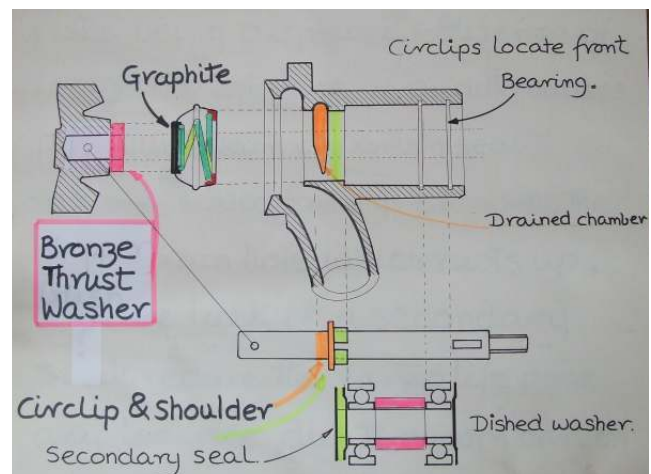 Circlips Locate front
Bearing.
Graphite
Drained chamber
Bronze
Thrust
Washer
Circlip & Shoulder
Secondary seal.
Dished washer.